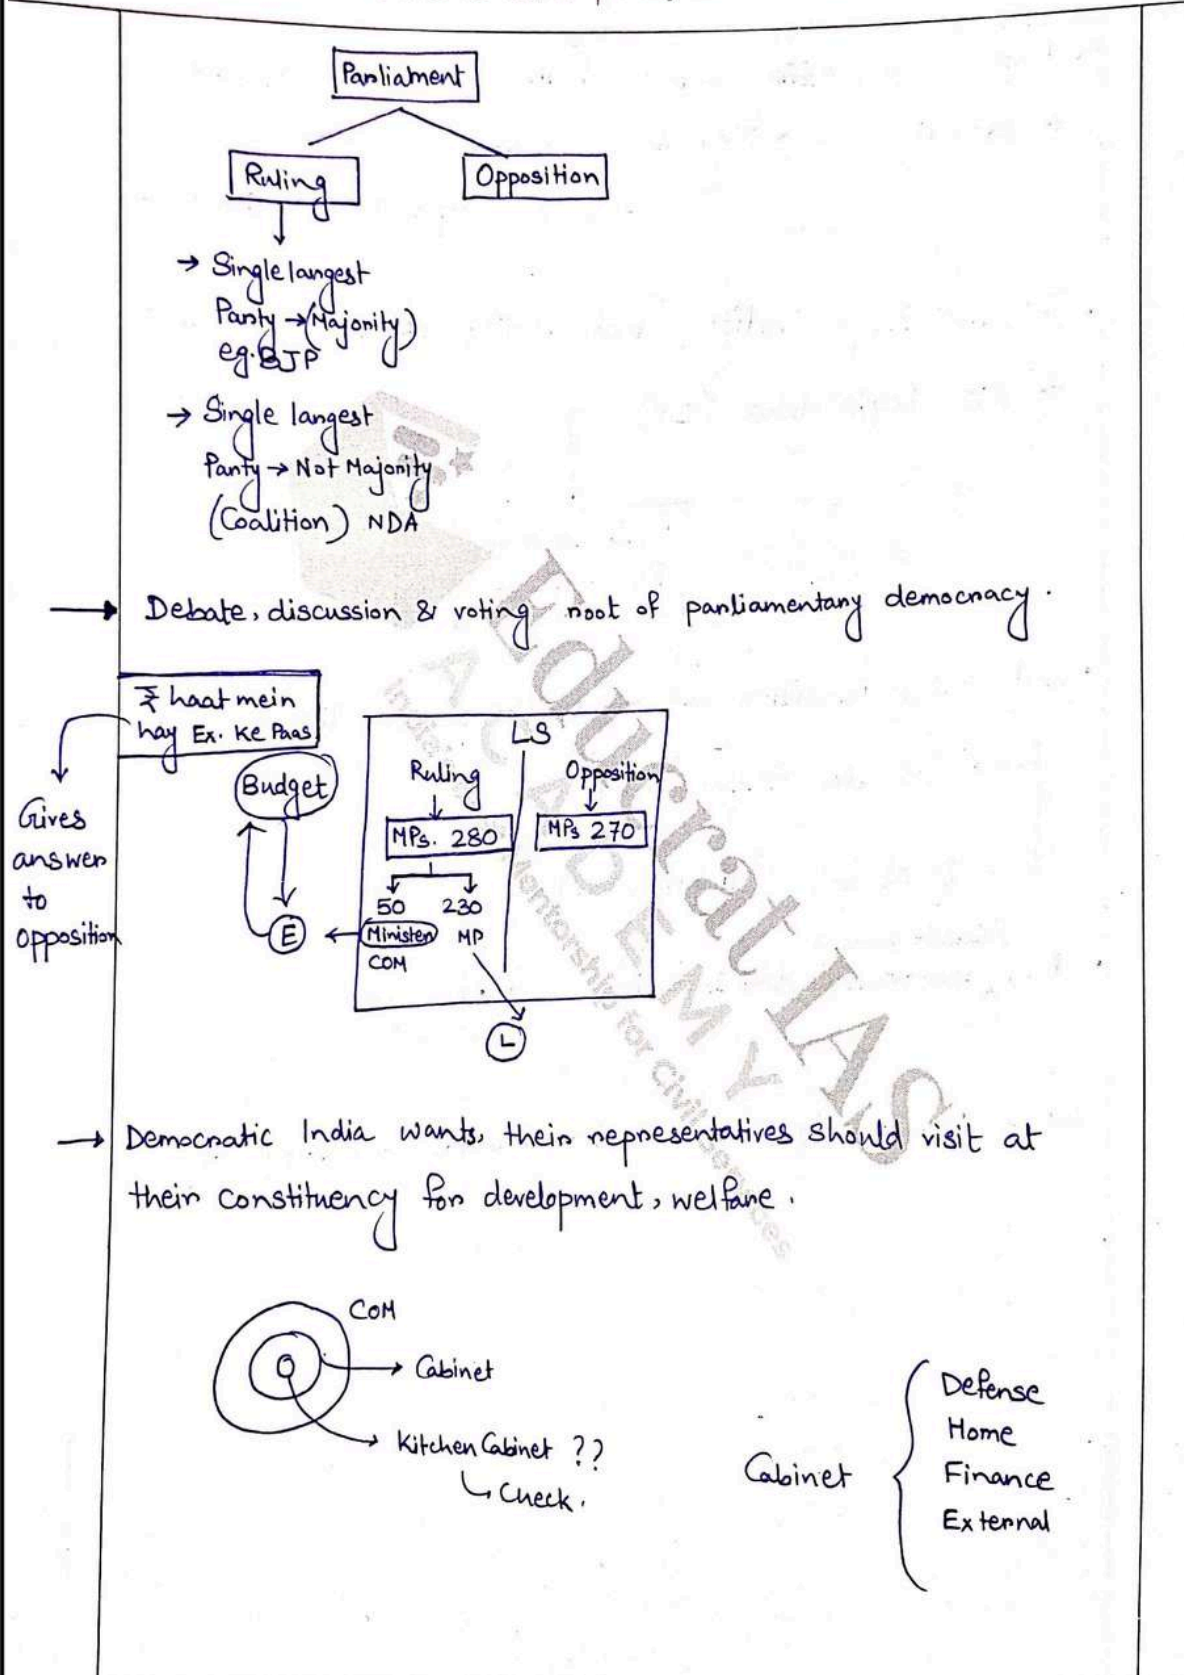 Parliament
Ruling
Opposition
→ Single largest
Party → (Majority)
eg. BJP
→ Single largest
Party → Not Majority
(Coalition) NDA
→ Debate, discussion & voting root of parliamentary democracy.
₹ haat mein
hay Ex. Ke Paas
Gives
answer
to
opposition
Budget
E
LS
Ruling
Opposition
MPs. 280
MPs 270
50 230
Minister MP
COM
L
→ Democratic India wants, their representatives should visit at
their constituency for development, welfare.
COM
Cabinet
Kitchen Cabinet ??
↳ Check.
Cabinet
Defense
Home
Finance
External
Educrat IAS
ACADEMY